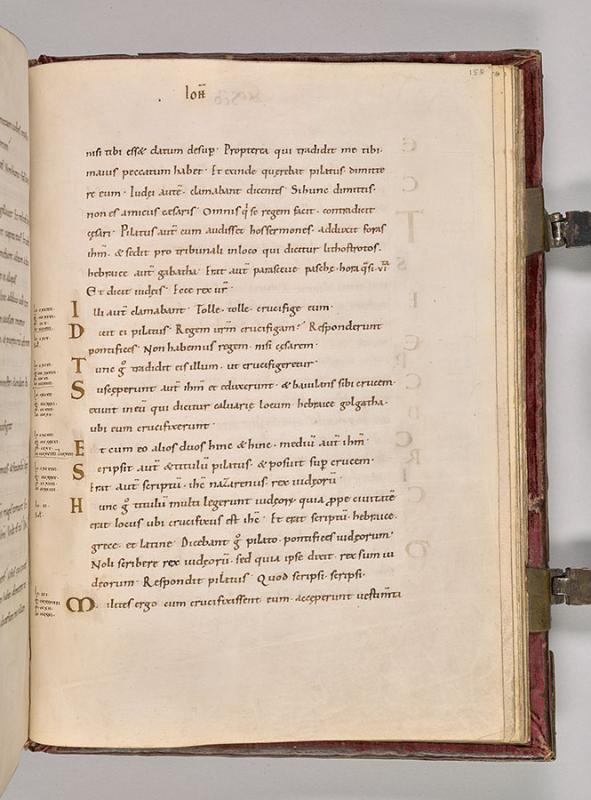 Ioh̄
158
nisi tibi eēt datum desup̱. Propterea qui tradidit me tibi.
maius peccatum habet. Et exinde querebat pilatus dimitte
re eum. Iudei autē. clamabant dicentes. Si hunc dimittis.
non es amicus cęsaris. Omnis q se regem facit. contradicit
cęsari. Pilatus aut̄ cum audisset hos sermones. adduxit foras
ihm̄. & sedit pro tribunali in loco qui dicitur lithostrotos.
hebraice aut̄ gabatha. Erat aut̄ parasceue paschę. hora q̄si. vi.
Et dicit iudęis. Ecce rex ur̄.
Illi aut̄ clamabant. Tolle. tolle. crucifige eum.
Dixit ei pilatus. Regem ur̄m crucifigam? Responderunt
pontifices. Non habemus regem. nisi cęsarem.
Tunc g̊ tradidit eis illum. ut crucifigeretur.
Susceperunt aut̄ ihm̄ et eduxerunt. & baiulans sibi crucem.
exiuit in eū qui dicitur caluarię locum. hebraice golgatha.
ubi eum crucifixerunt.
Et cum eo alios duos hinc & hinc. mediū aut̄ ihm̄.
Scripsit aut̄ & titulū pilatus. & posuit sup̱ crucem.
Erat aut̄ scriptū. ihc̄ nazarenus rex iudęorū.
Hunc g̊ titulū multi legerunt iudęorꝝ. quia ꝓpe ciuitatē
erat locus ubi crucifixus est ihc̄. Et erat scriptū. hebraice.
grece. et latine. Dicebant g̊ pilato. pontifices iudęorum.
Noli scribere rex iudęorū. sed quia ipse dixit. rex sum iu
dęorum. Respondit pilatus. Quod scripsi. scripsi.
Milites ergo cum crucifixissent eum. acceperunt uestimta